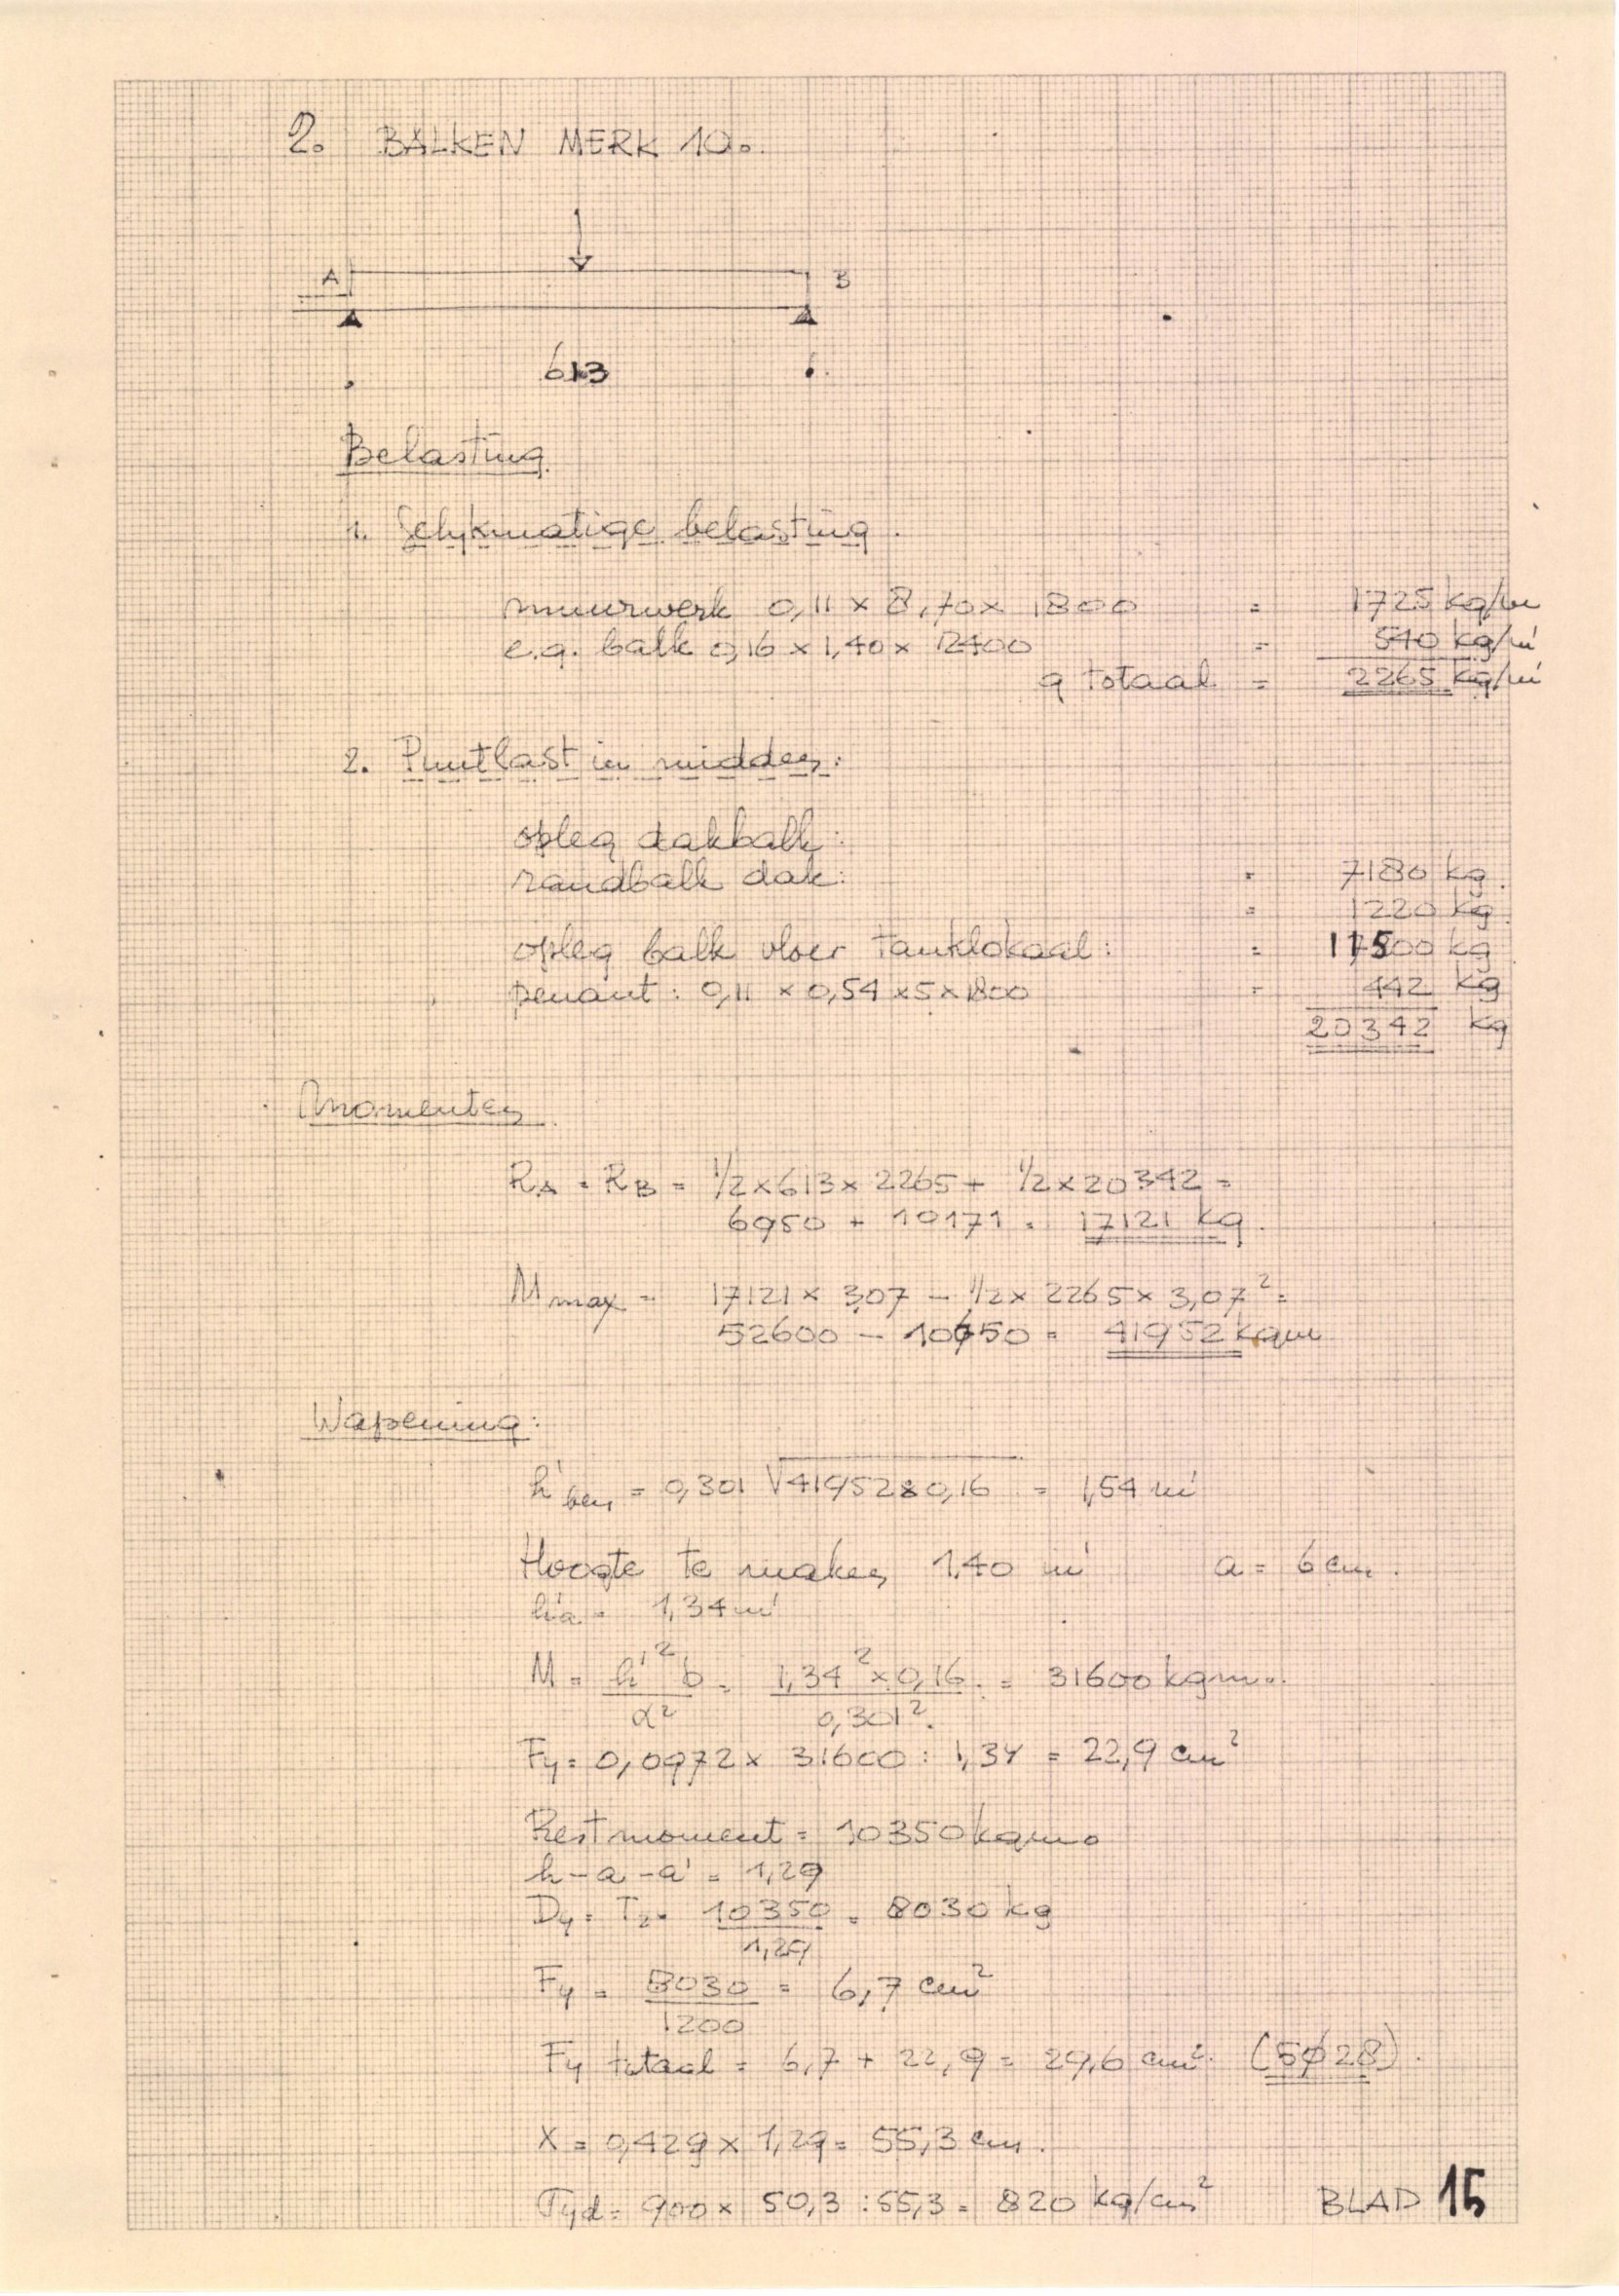 2. BALKEN MERK 10.
A B
613
Belasting
1. Gelykmatige belasting.
muurwerk 0,11 x 8,70 x 1800 = 1725 kg/m
e.g. balk 0,16 x 1,40 x 2400 = 540 kg/m'
q totaal = 2265 kg/m'
2. Puntlast in midden:
opleg dakbalk:
randbalk dak: = 7180 kg.
= 1220 kg.
opleg balk vloer tanklokaal: = 11500 kg
penant: 0,11 x 0,54 x 5 x 1800 = 442 kg
20342 kg
Momenten
RA = RB = 1/2 x 613 x 2265 + 1/2 x 20342 =
6950 + 10171 = 17121 kg.
M max = 17121 x 3,07 - 1/2 x 2265 x 3,07² =
52600 - 10650 = 41952 kgm
Wapening:
h' ben = 0,301 √41952:0,16 = 1,54 m'
Hoogte te maken 1.40 m' a = 6 cm.
h-a = 1,34 m'
M = h'² b / α² = 1,34² x 0,16 / 0,301² = 31600 kgm.
Fy = 0,0972 x 31600 : 1,34 = 22,9 cm²
Restmoment = 10350 kgm.
h-a-a' = 1,29
Dy = Tz = 10350 / 1,29 = 8030 kg
Fy = 8030 / 1200 = 6,7 cm²
Fy totaal = 6,7 + 22,9 = 29,6 cm². (5ø28).
X = 0,429 x 1,29 = 55,3 cm.
σyd = 900 x 50,3 : 55,3 = 820 kg/cm² BLAD 15